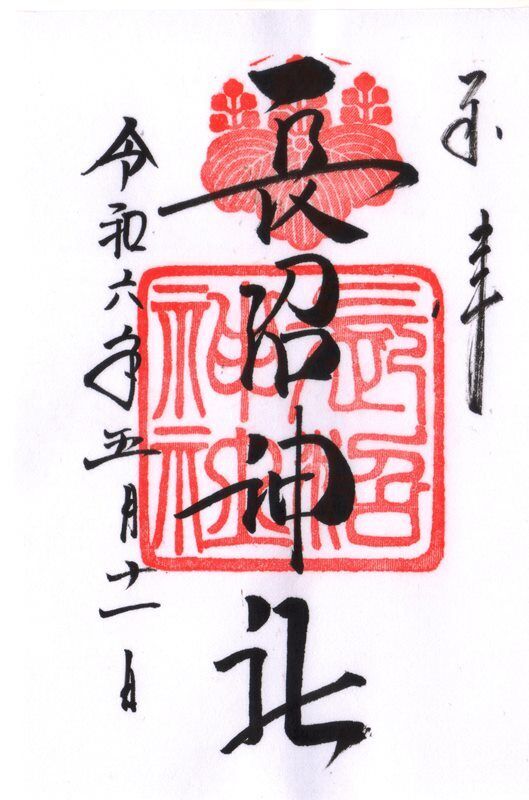 奉拝
長沼神社
長沼神社
令和六年五月十一日